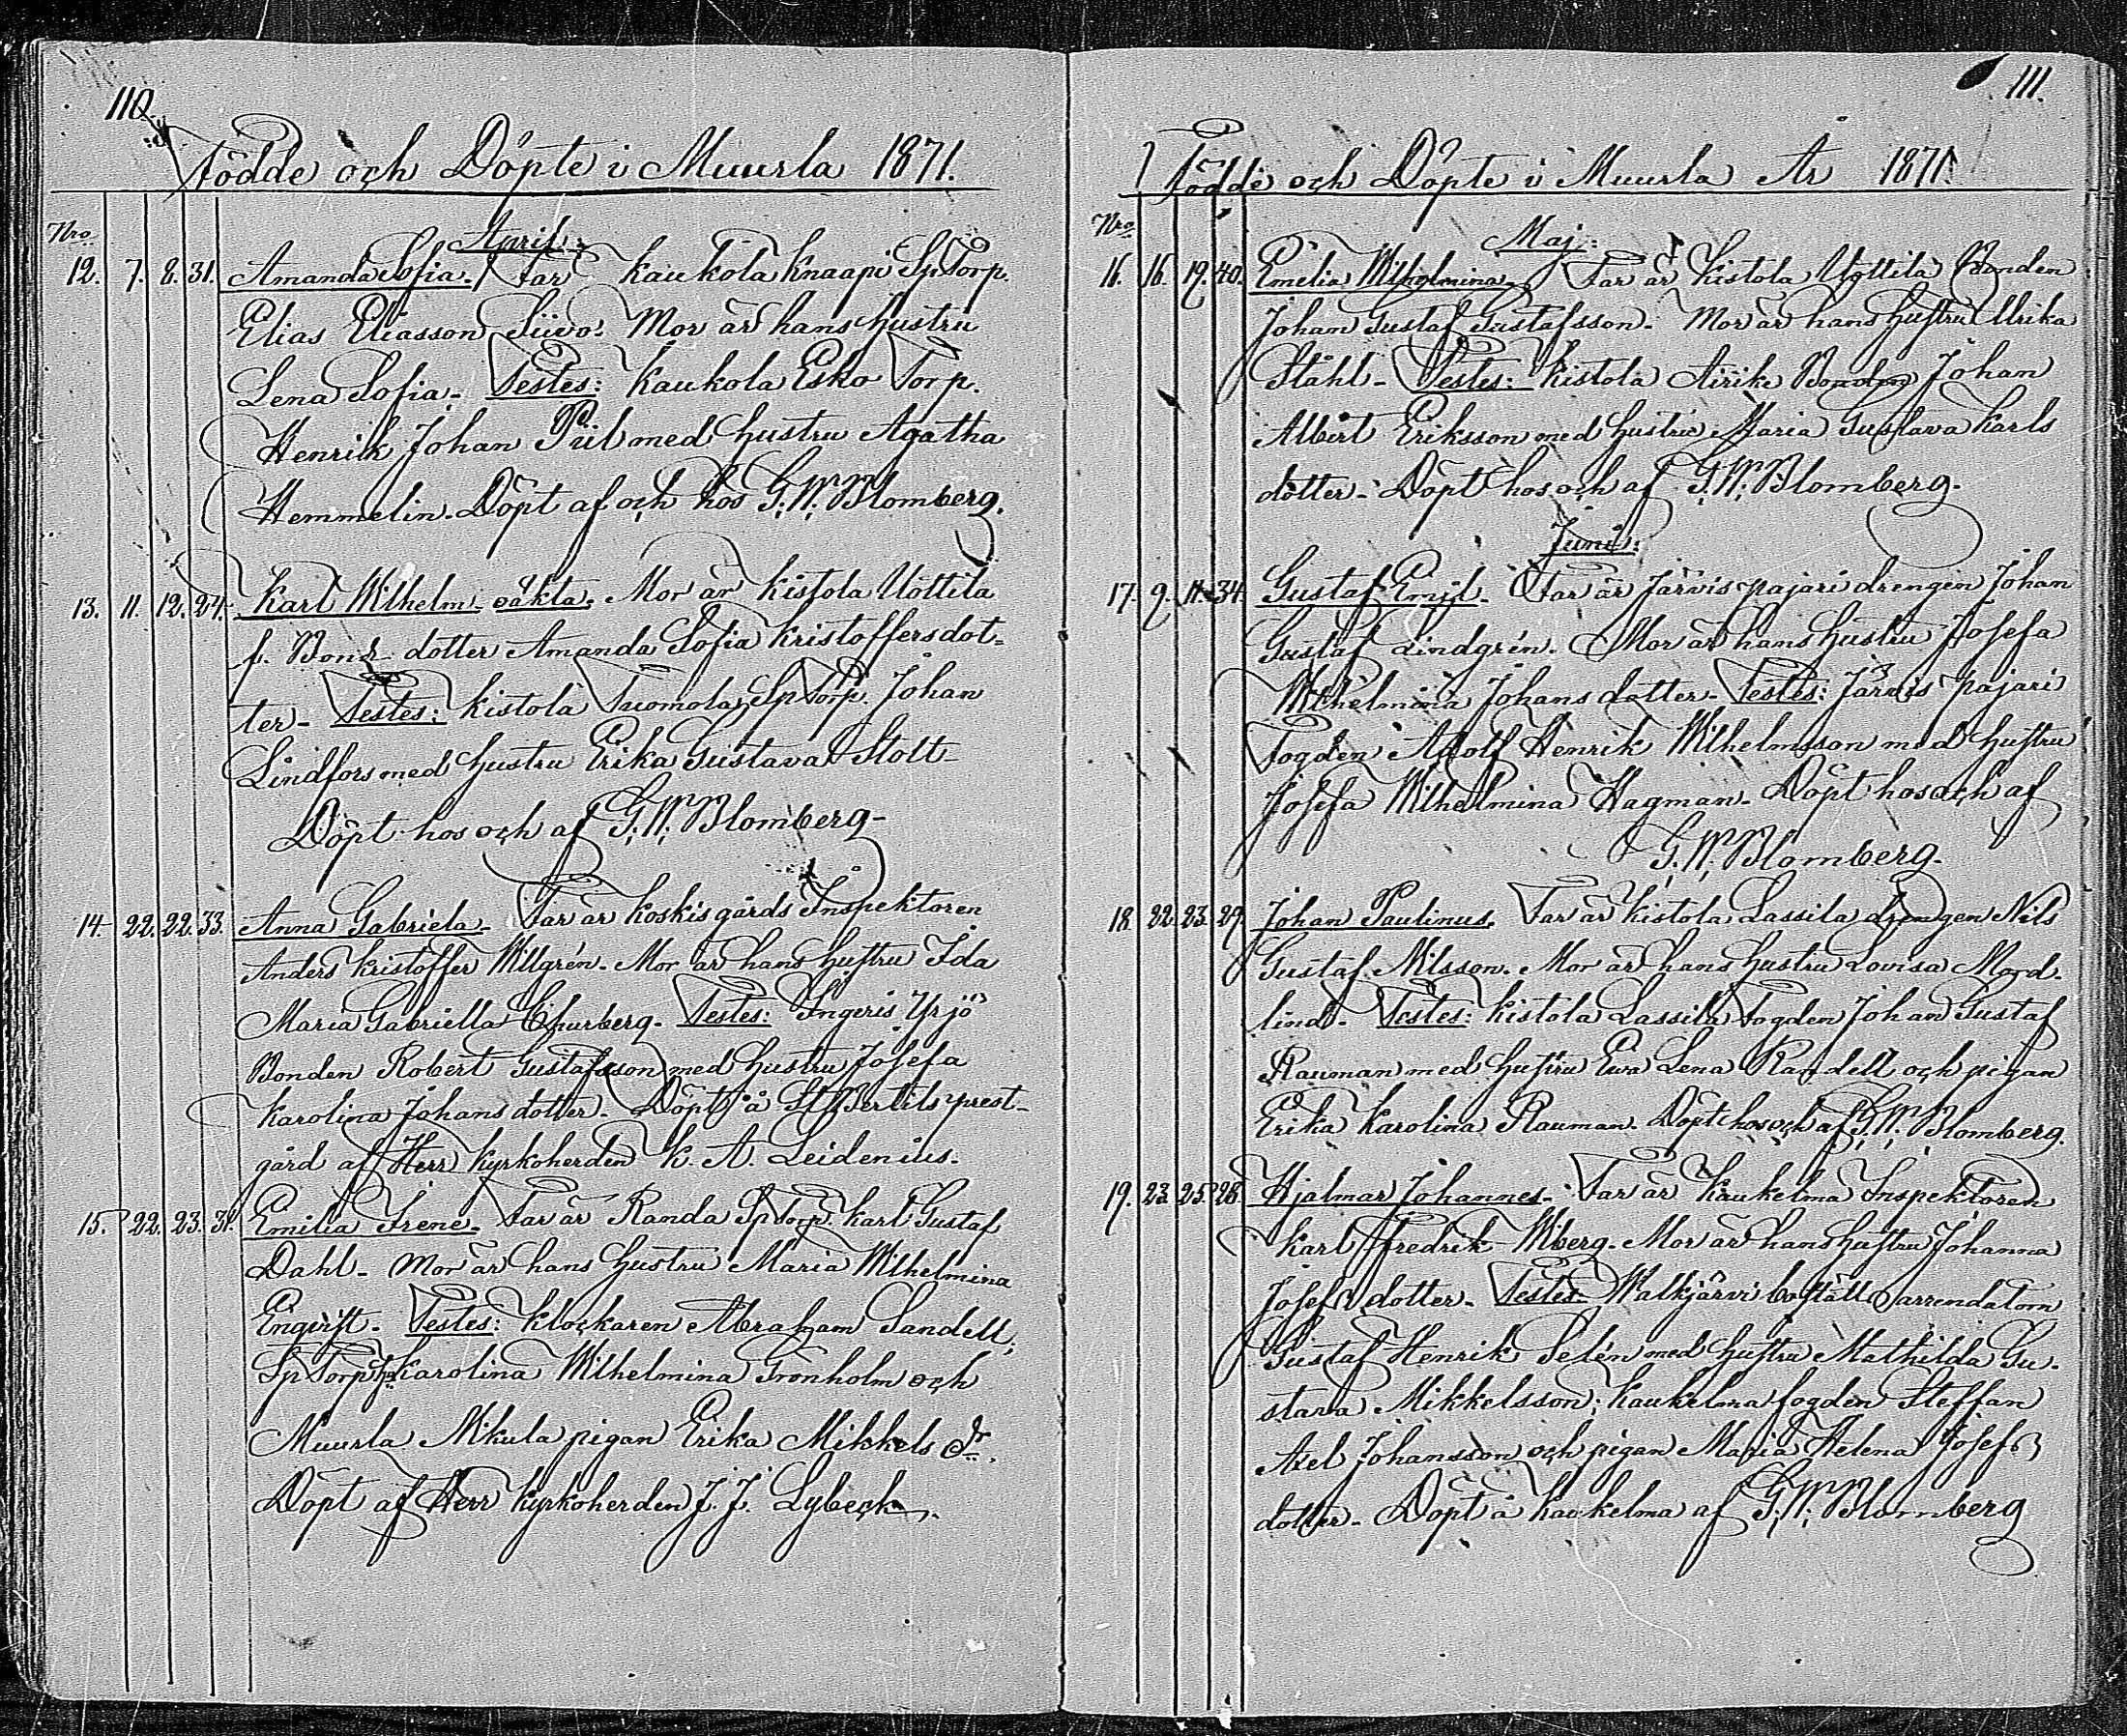 110.
Födde och Döpte i Muurla 1871.
Nro
April:
12. 7. 8. 31. Amanda Sofia. Far Kaukola Knaapi Sp Torp.
Elias Eliasson Siivo. Mor är hans hustru
Lena Sofia. Testes: Kaukola Esko Torp.
Henrik Johan Piil med hustru Agatha
Hemmelin. Döpt af och hos G. W. Blomberg.
13. 11. 12. 24. Karl Wilhelm oäkta. Mor är Kistola Uottila
f. Bond dotter Amanda Sofia Kristoffersdot-
ter. Testes: Kistola Tuomola Sp Torp. Johan
Lindfors med hustru Erika Gustava Stolt.
Döpt hos och af G. W. Blomberg.
14. 22. 22. 33. Anna Gabriela. Far är Koskis gårds Inspektoren
Anders Kristoffer Willgrén. Mor är hans hustru Ida
Maria Gabriella Churberg. Testes: Ingeris Yrjö
Bonden Robert Gustafsson med hustru Josefa
Karolina Johansdotter. Döpt å St Bertils prest-
gård af Herr Kyrkoherden K. A. Leidenius.
15. 22. 23. 31. Emilia Irene. Far är Randa Sp Torp. Karl Gustaf
Dahl. Mor är hans hustru Maria Wilhelmina
Engvist. Testes: Klockaren Abraham Sandell,
Sp Torp Karolina Wilhelmina Grönholm och
Muurla Nikula pigan Erika Mikkels dr.
Döpt af Herr Kyrkoherden J. J. Lybeck.
111.
Födde och Döpte i Muurla År 1871.
Nro
Maj:
16. 16. 19. 40. Emelia Wilhelmina. Far är Kistola Uottila Bonden
Johan Gustaf Gustafsson. Mor är hans hustru Ulrika
Ståhl. Testes: Kistola Airiki Bonden Johan
Albert Eriksson med hustru Maria Gustava Karls
dotter. Döpt hos och af G. W. Blomberg.
Juni:
17. 9. 11. 34. Gustaf Emil. Far är Järvis pajari drengen Johan
Gustaf Lindgrén. Mor är hans hustru Josefa
Wilhelmina Johansdotter. Testes: Järvis pajari
Fogden Adolf Henrik Wilhelmsson med hustru
Josefa Wilhelmina Hagman. Döpt hos och af
G. W. Blomberg.
18. 22. 23. 29. Johan Paulinus. Far är Kistola Lassila drengen Nils
Gustaf Nilsson. Mor är hans hustru Lovisa Mord-
lind. Testes: Kistola Lassila Fogden Johan Gustaf
Rauman med hustru Ewa Lena Randell och pigan
Erika Karolina Rauman. Döpt hos och af G. W. Blomberg.
19. 23. 25. 28. Hjalmar Johannes. Far är Kaukelma Inspektoren
Karl Fredrik Wiberg. Mor är hans hustru Johanna
Josefs dotter. Testes: Walkjärvi boställs arrendatorn
Gustaf Henrik Selén med hustru Mathilda Gu-
stava Mikkelsson; Kaukelma fogden Steffan
Axel Johansson och pigan Maria Helena Josefs
dotter. Döpt å Kaukelma af G. W. Blomberg